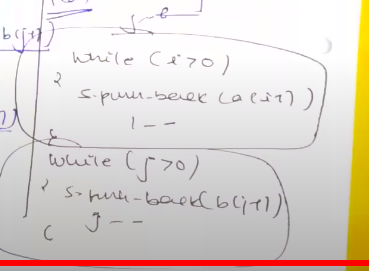 b(j-1)
while (i>0)
{
s.push-back(a(i-1))
i--
while (j>0)
{
s.push-back(b(j-1)
j--